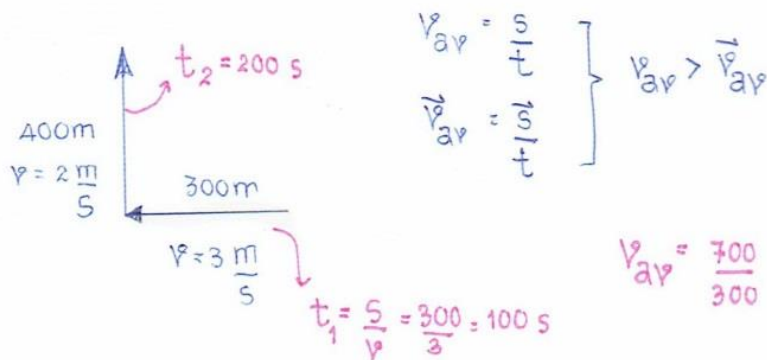 t₂ = 200 s
400m
v = 2 m/s
300m
v = 3 m/s
t₁ = s/v = 300/3 = 100 s
v_av = s/t
v⃗_av = s⃗/t
v_av > v⃗_av
v_av = 700/300